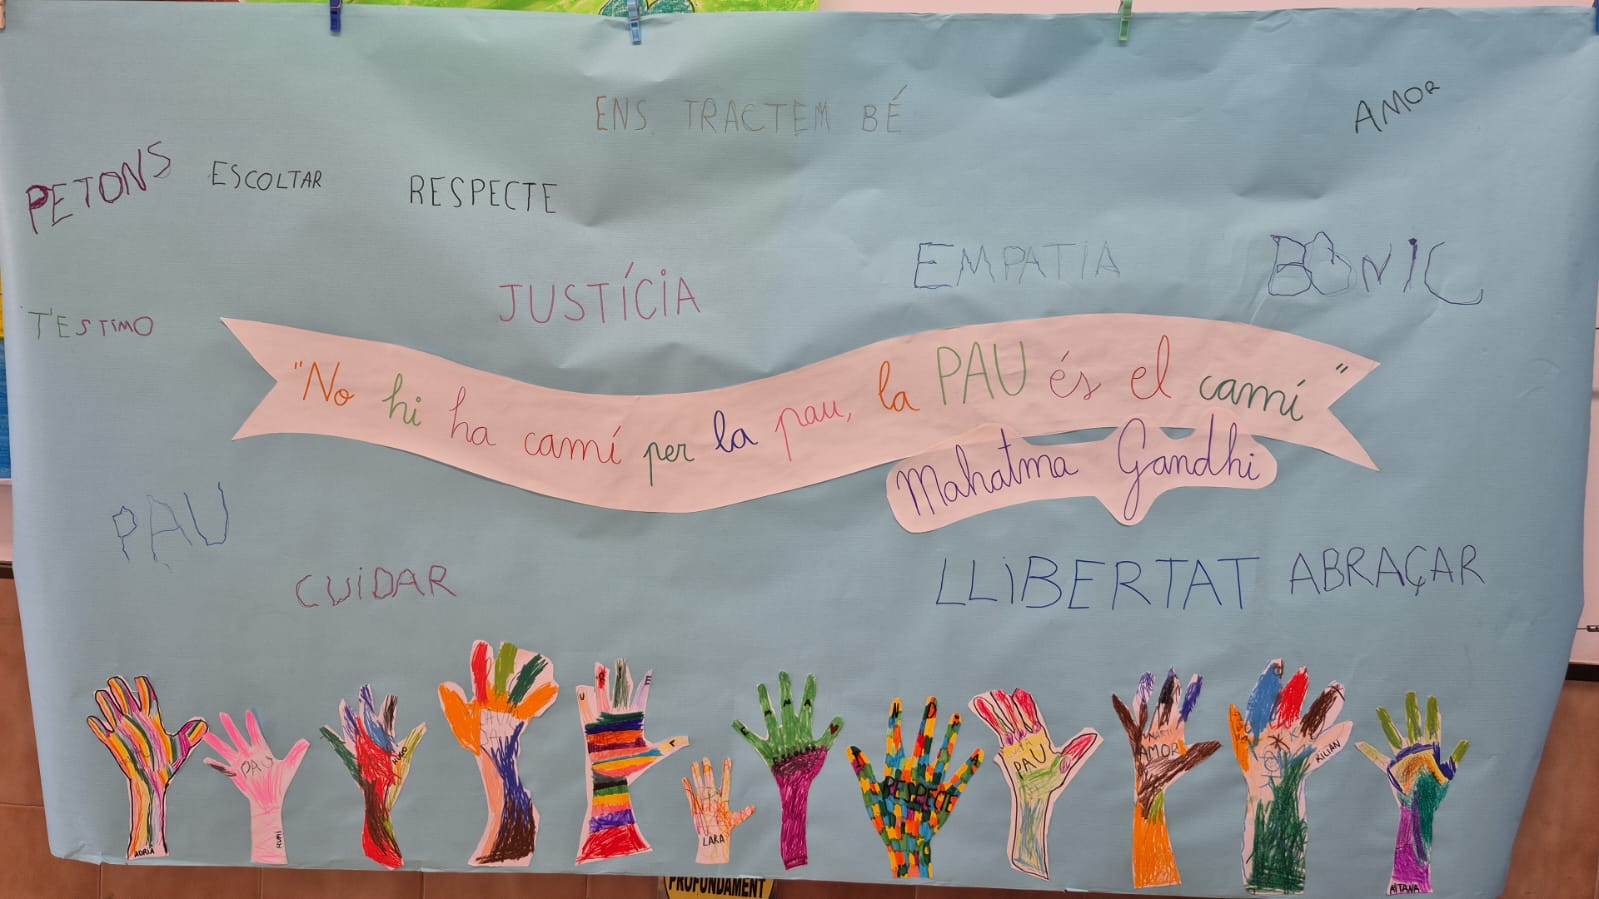 ENS TRACTEM BÉ
AMOR
PETONS
ESCOLTAR
RESPECTE
EMPATIA
BONIC
JUSTÍCIA
T'ESTIMO
"No hi ha camí per la pau, la PAU és el camí"
Mahatma Gandhi
PAU
CUIDAR
LLIBERTAT
ABRAÇAR
ADRIÀ
PAU
RUMI
LARA
RESPECTE
PAU
AMOR
KILIAN
AITANA
PROFUNDAMENT